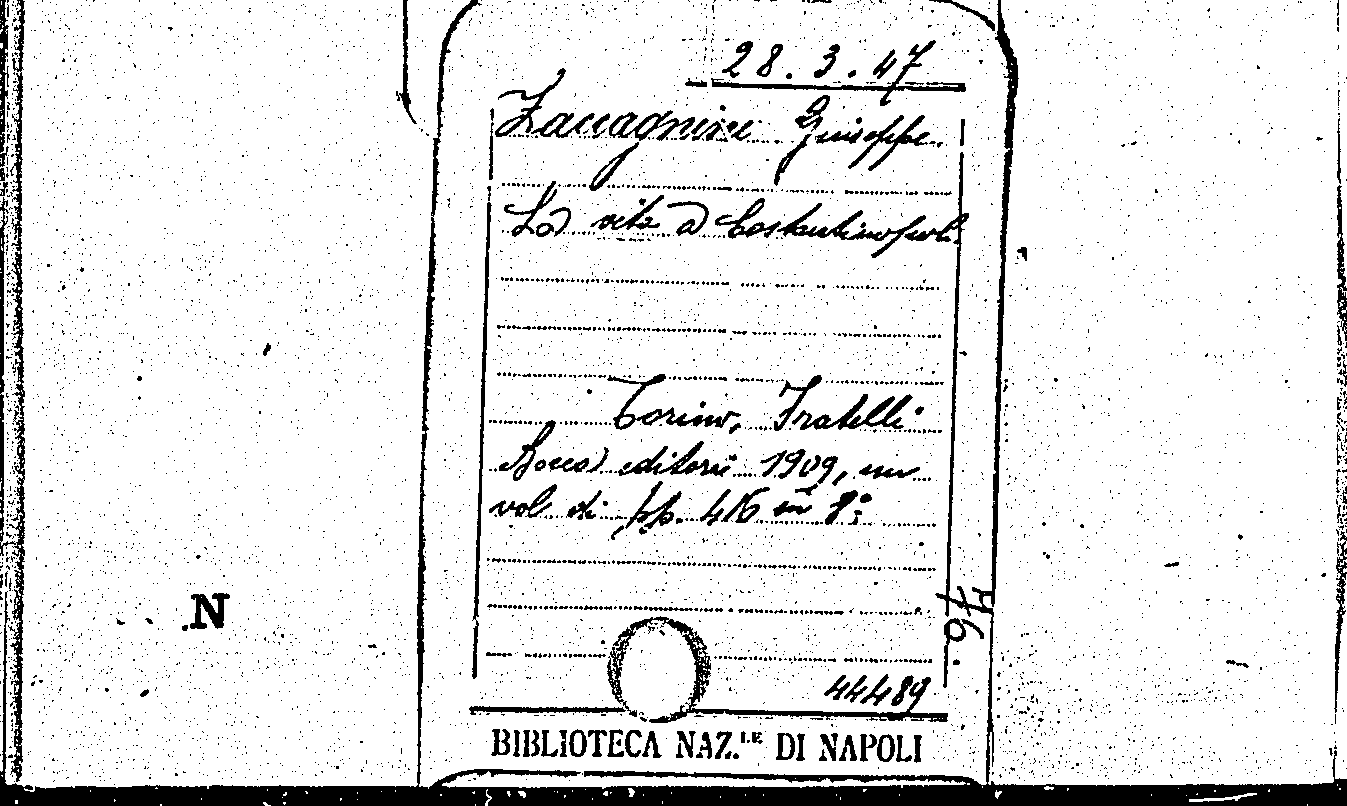 28.3.47
Zaccagnini Giuseppe.
La vita a Costantinopoli.
Torino, Fratelli
Bocca editori 1909, un
vol. di pp. 416 in 8º.
76.
N
44489
BIBLIOTECA NAZ.LE DI NAPOLI